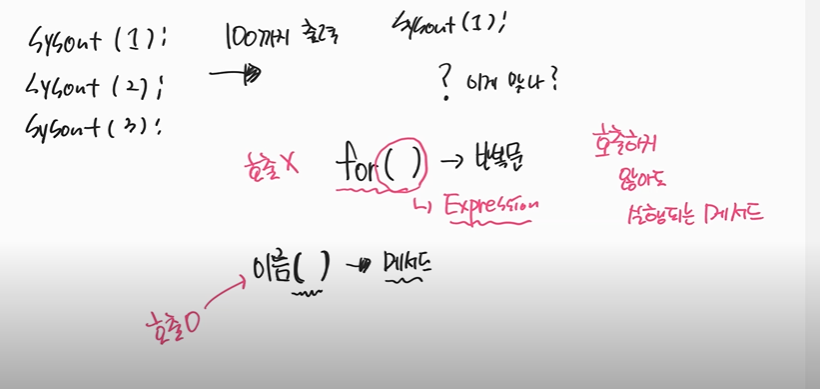 Sysout (1);
Sysout (2);
Sysout (3);
100까지 출력
Sysout (1);
? 이게 맞나?
호출 X
for( ) → 반복문
↳ Expression
호출하지
않아도
실행되는 메서드
이름( ) → 메서드
호출O